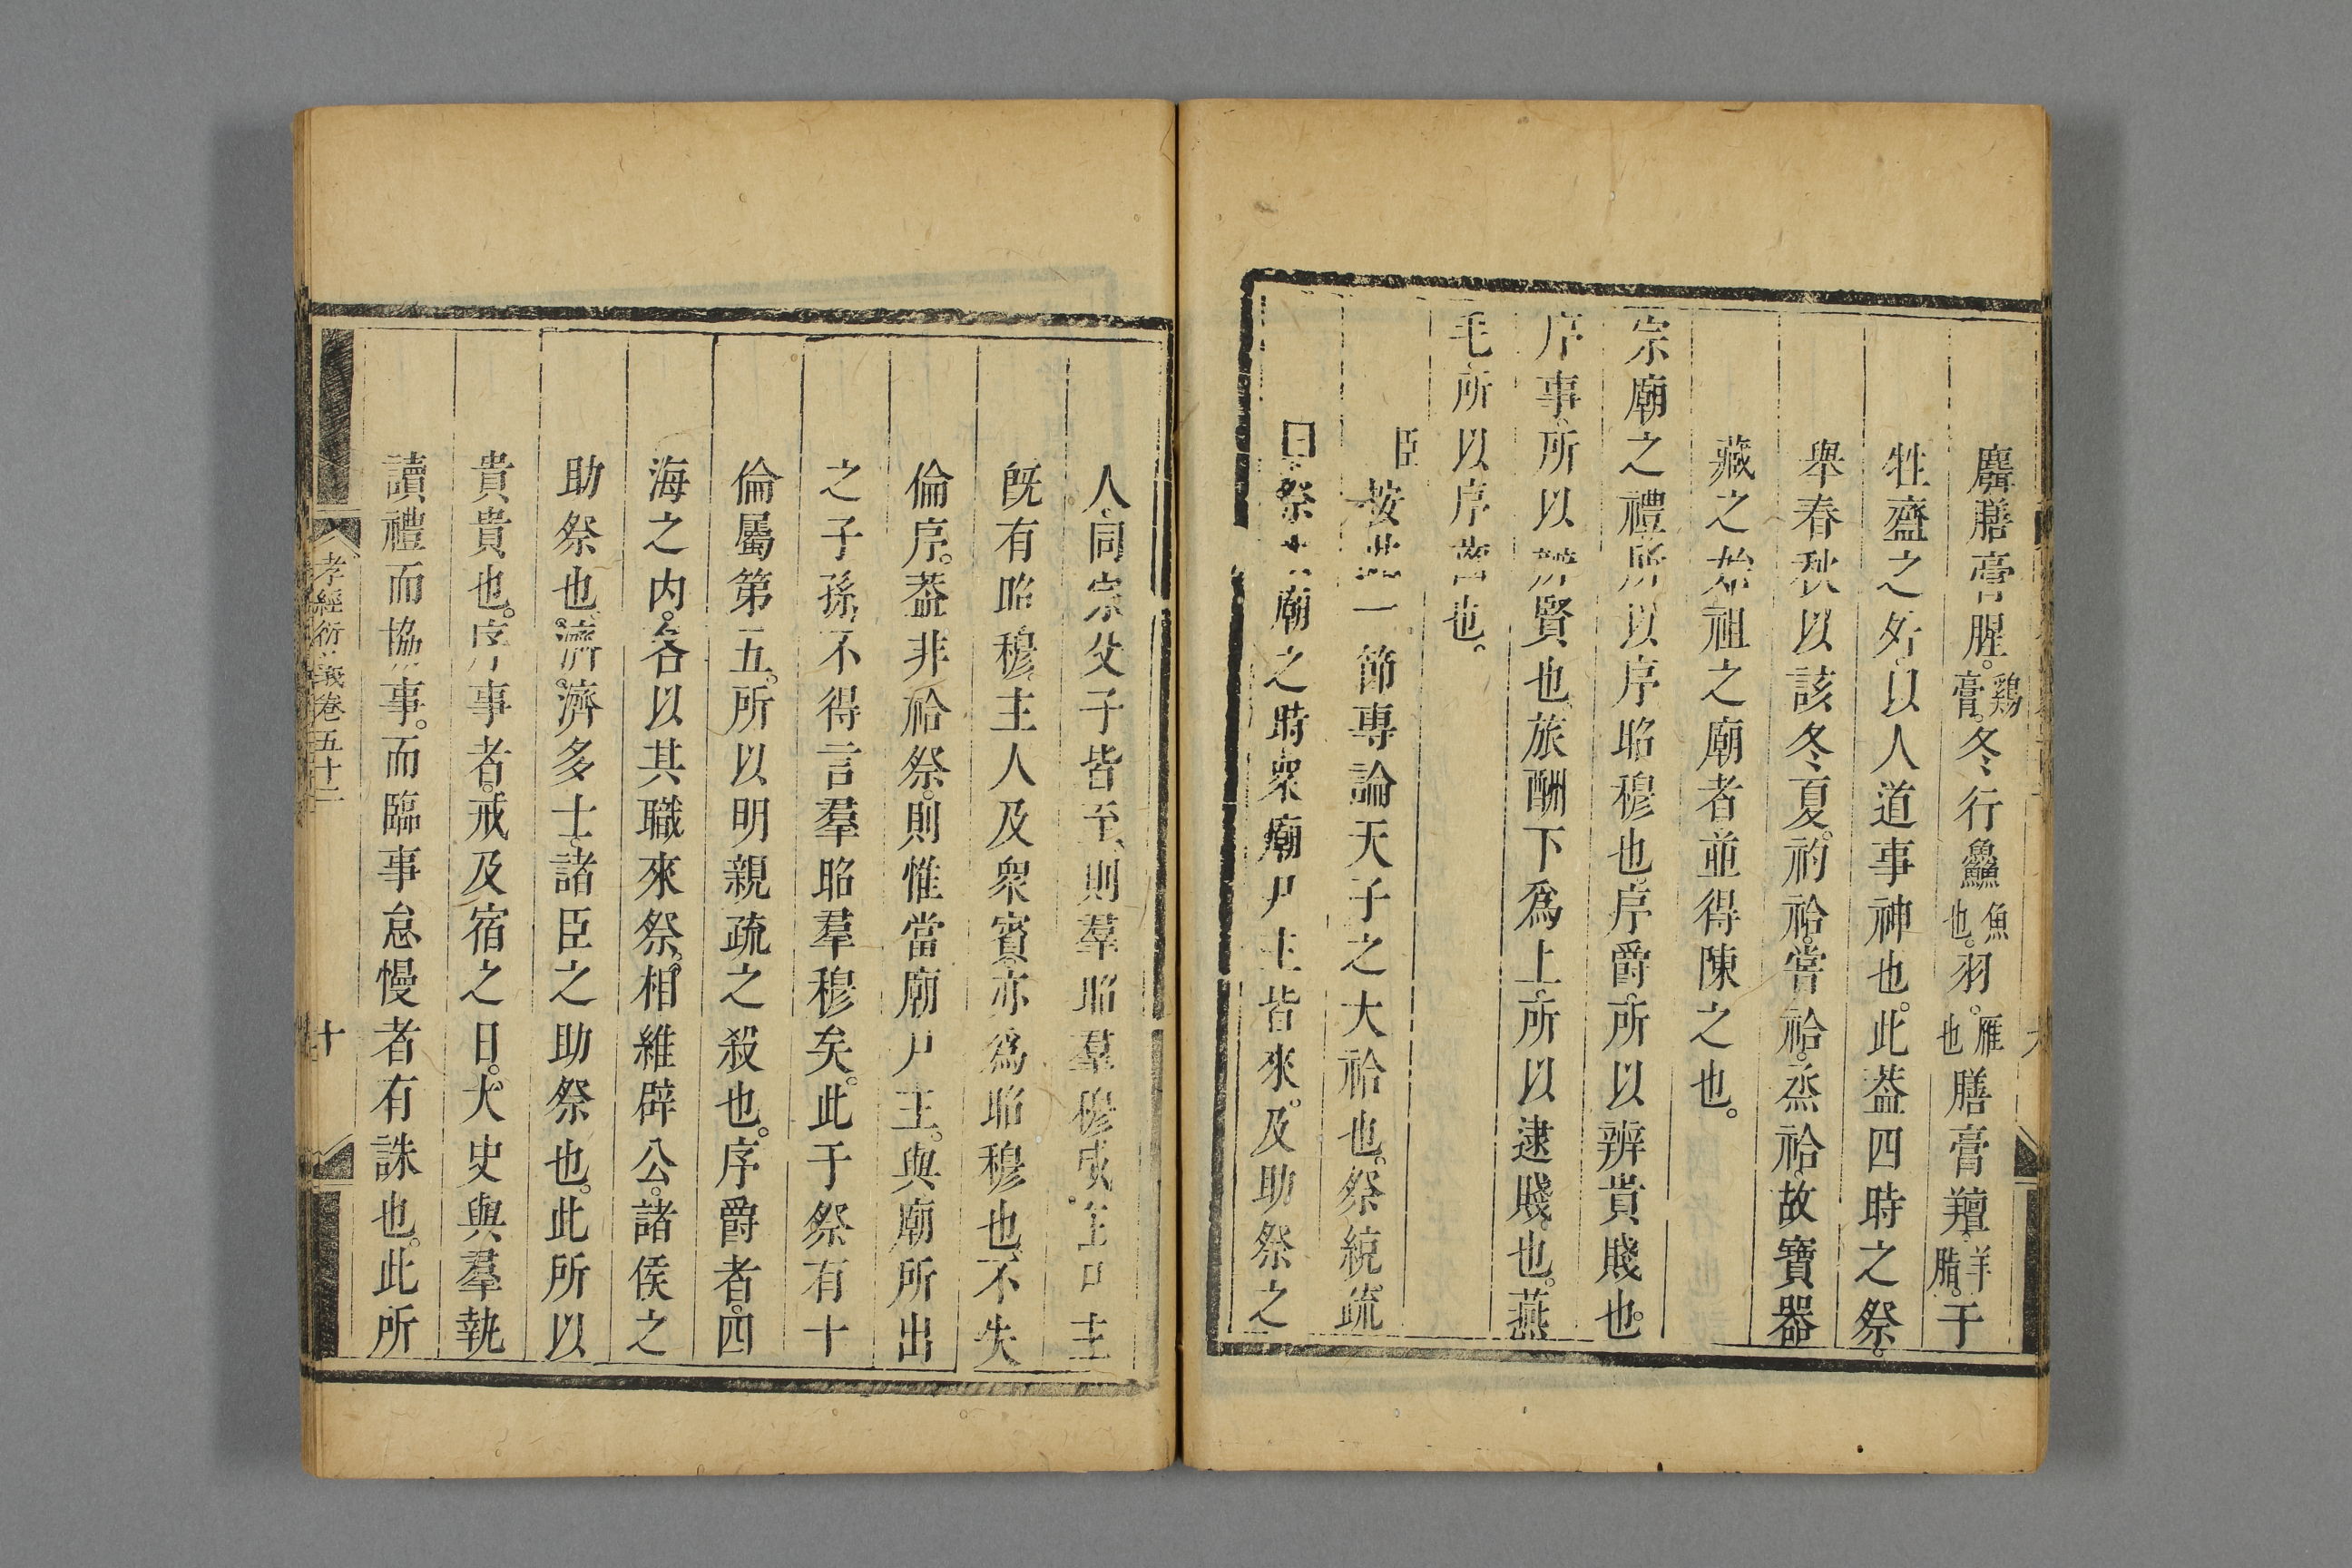 麛膳膏腥。鷄膏。冬行鱻魚也。羽。雁也膳膏羶羊脂。于
牲齍之外。以人道事神也。此葢四時之祭。
舉春秋以該冬夏。礿祫。嘗祫。烝祫。故寶器
藏之始祖之廟者並得陳之也。
宗廟之禮所以序昭穆也。序爵。所以辨貴賤也。
序事。所以辨賢也。旅酬下爲上。所以逮賤也。燕
毛。所以序齒也。
臣按此一節專論天子之大祫也。祭統疏
曰。祭大廟之時衆廟尸主皆來。及助祭之
人。同宗父子皆至、則羣昭羣穆咸主
旣有昭穆。主人及衆賓。亦爲昭穆也、不失
倫序。葢非祫祭。則惟當廟尸主。與廟所出
之子孫、不得言羣昭羣穆矣。此于祭有十
倫屬第五。所以明親疏之殺也。序爵者。四
海之内。各以其職來祭。相維辟公。諸侯之
助祭也。濟濟多士。諸臣之助祭也。此所以
貴貴也。序事者。戒及宿之日。大史與羣執
讀禮而協事。而臨事怠慢者有誅也。此所
孝經衍義卷五十二
十